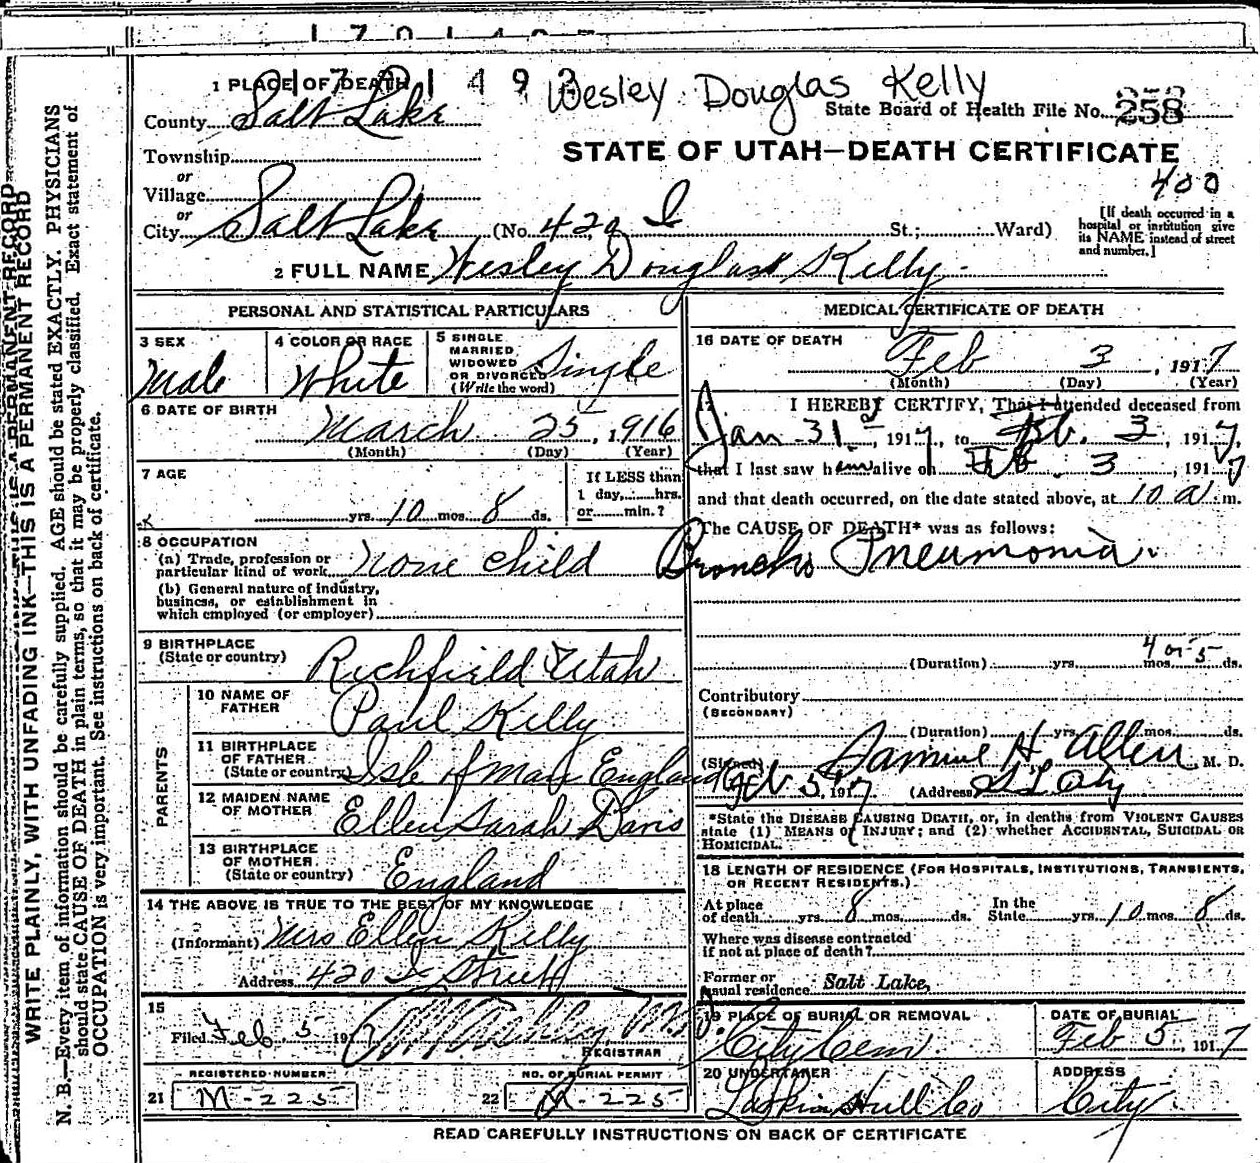 1 PLACE OF DEATH
1 4 9
Wesley Douglas Kelly
County Salt Lake
State Board of Health File No. 258
Township
STATE OF UTAH—DEATH CERTIFICATE
or
Village
400
or
City Salt Lake (No. 420 I St.; Ward)
[If death occurred in a hospital or institution give its NAME instead of street and number.]
2 FULL NAME Wesley Douglas Kelly
PERSONAL AND STATISTICAL PARTICULARS
3 SEX
Male
4 COLOR OR RACE
White
5 SINGLE, MARRIED, WIDOWED OR DIVORCED
(Write the word)
Single
6 DATE OF BIRTH
March 25, 1916
(Month) (Day) (Year)
7 AGE
yrs. 10 mos. 8 ds.
If LESS than
1 day, hrs.
or min.?
8 OCCUPATION
(a) Trade, profession or
particular kind of work None child
(b) General nature of industry,
business, or establishment in
which employed (or employer)
9 BIRTHPLACE
(State or country)
Richfield Utah
PARENTS
10 NAME OF FATHER
Paul Kelly
11 BIRTHPLACE OF FATHER
(State or country) Isle of Man England
12 MAIDEN NAME OF MOTHER
Ellen Sarah Davis
13 BIRTHPLACE OF MOTHER
(State or country)
England
14 THE ABOVE IS TRUE TO THE BEST OF MY KNOWLEDGE
(Informant) Mrs Ellen Kelly
Address 420 I Street
15
Filed Feb 5 1917
REGISTRAR
REGISTERED NUMBER
21 M-225
NO. OF BURIAL PERMIT
22 M-225
MEDICAL CERTIFICATE OF DEATH
16 DATE OF DEATH
Feb 3, 1917
(Month) (Day) (Year)
17 I HEREBY CERTIFY, That I attended deceased from
Jan 31st, 1917, to Feb. 3, 1917,
that I last saw him alive on Feb 3, 1917
and that death occurred, on the date stated above, at 10 a.m.
The CAUSE OF DEATH* was as follows:
Broncho Pneumonia.
(Duration) yrs. mos. 4 or 5 ds.
Contributory
(SECONDARY)
(Duration) yrs. mos. ds.
(Signed) Samuel H. Allen, M. D.
Feb 5, 1917 (Address) S L City
*State the DISEASE CAUSING DEATH, or, in deaths from VIOLENT CAUSES
state (1) MEANS OF INJURY; and (2) whether ACCIDENTAL, SUICIDAL OR
HOMICIDAL.
18 LENGTH OF RESIDENCE (FOR HOSPITALS, INSTITUTIONS, TRANSIENTS,
OR RECENT RESIDENTS.)
At place of death yrs. 8 mos. ds. In the State yrs. 10 mos. 8 ds.
Where was disease contracted
if not at place of death?
Former or
usual residence Salt Lake,
19 PLACE OF BURIAL OR REMOVAL
City Cem.
DATE OF BURIAL
Feb 5, 1917
20 UNDERTAKER
Larkin Hull Co
ADDRESS
City
READ CAREFULLY INSTRUCTIONS ON BACK OF CERTIFICATE
WRITE PLAINLY, WITH UNFADING INK—THIS IS A PERMANENT RECORD
N. B.—Every item of information should be carefully supplied. AGE should be stated EXACTLY. PHYSICIANS
should state CAUSE OF DEATH in plain terms, so that it may be properly classified. Exact statement of
OCCUPATION is very important. See instructions on back of certificate.